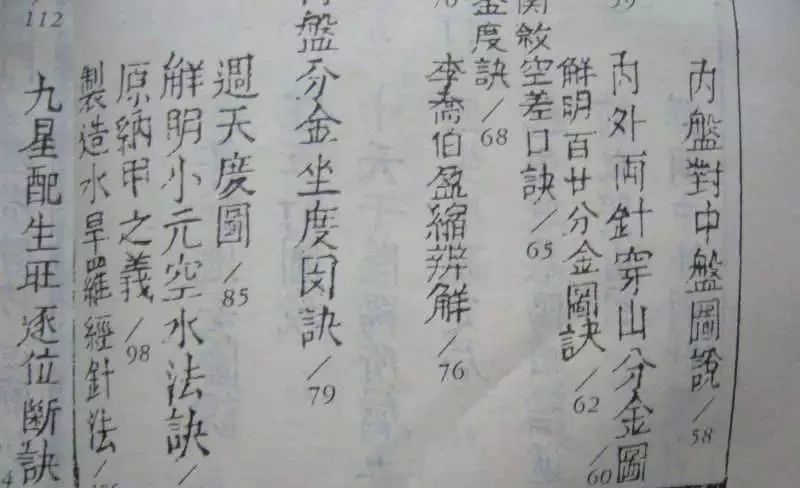 59
內盤對中盤圖說/58
內外両針穿山分金圖/60
解明百廿分金圖訣/62
敘空差口訣/65
金度訣/68
李喬伯盈縮辨解/76
盤分金坐度訣/79
週天度圖/85
解明小元空水法訣/
原納甲之義/98
製造水旱羅經針法/
112
九星配生旺逐位斷訣